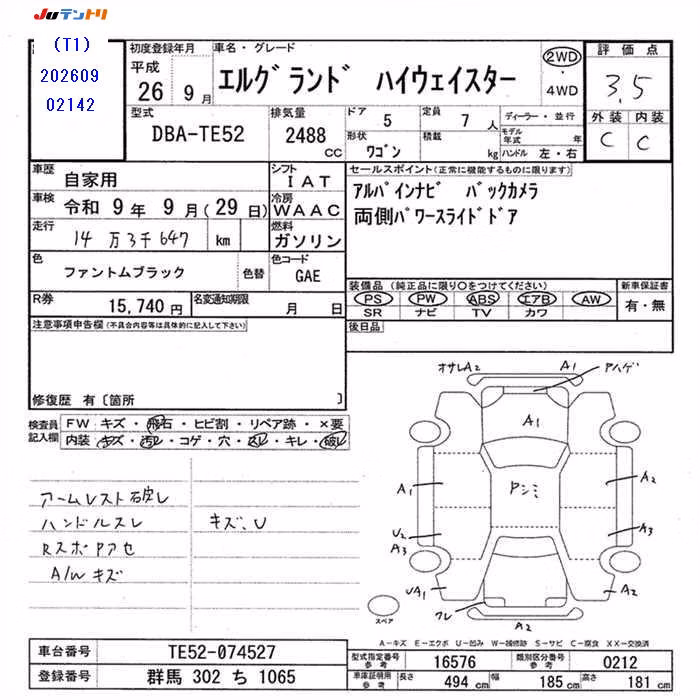 JUテントリ
(T1)
202609
02142
初度登録年月
平成
26 9月
車名・グレード
エルグランド ハイウェイスター
2WD
・
4WD
評価点
3.5
外装 内装
C C
型式
DBA-TE52
排気量
2488
CC
ドア 5
定員 7 人
形状 ワゴン
積載 kg
ディーラー・並行
モデル年式 年
ハンドル 左・右
車歴 自家用
シフト IAT
車検 令和 9年 9月(29日)
冷房 WAAC
走行 14万3千647 km
燃料 ガソリン
色 ファントムブラック 色替
色コード GAE
R券 15,740円
名変通知期限 月 日
セールスポイント(正常に機能するものに限ります)
アルパインナビ バックカメラ
両側パワースライドドア
装備品(純正品に限り○をつけてください)
PS・PW・ABS・エアB・AW
SR ナビ TV カワ
新車保証書
有・無
後日品
注意事項申告欄(不具合内容等は具体的に記入して下さい)
修復歴 有〔箇所 〕
検査員記入欄
FW キズ・飛石・ヒビ割・リペア跡・×要
内装・キズ・汚レ・コゲ・穴・スレ・キレ・破レ
アームレスト破レ
ハンドルスレ キズ、U
RスポPアセ
A/Wキズ
オサレA2 A1 アハゲ
A1
A1 Pシミ A2
U2 A3
A3
UA1 A2
クレ
A2
スペア
A-キズ E-エクボ U-凹み W-補修跡 S-サビ C-腐食 XX-交換済
車台番号 TE52-074527
登録番号 群馬 302 ち 1065
型式指定番号 参考 16576
類別区分番号 参考 0212
車庫証明用 参考 長さ 494 cm 幅 185 cm 高さ 181 cm